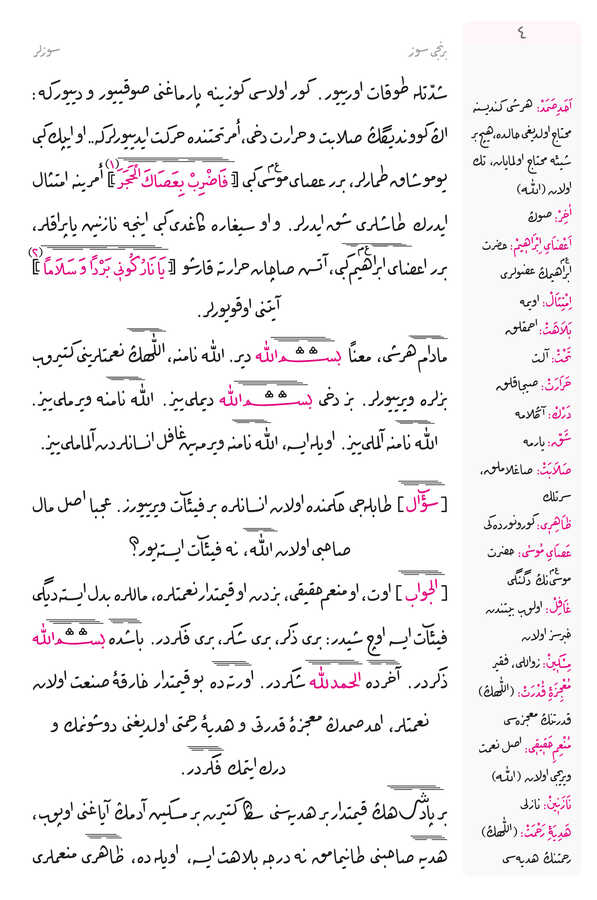 ٤
برنجی سوز
سوزلر
شدّتله طوقات اورییور. كور اولاسی كوزینه پارماغنی صوقییور و دییوركه:
اڭ كووندیگڭ صلابت و حرارت دخی، أمر تحتنده حركت ایدییورلركه.. او ایپك كبی
یوموشاق طمارلر، برر عصای موسی ع‌م كبی [ فَاضْرِبْ بِعَصَاكَ الْحَجَرَ ] (١) أمرینه امتثال
ایدرك طاشلری شق ایدرلر. و او سیغاره كاغدی كبی اینجه نازنین یاپراقلر،
برر اعضای ابراهیم ع‌م كبی، آتش صاچان حرارته قارشو [ يَا نَارُ كُونِى بَرْدًا وَ سَلَامًا ] (٢)
آیتنی اوقویورلر.
مادام هرشی، معنًا بســـم الله دیر. الله نامنه، اللّٰهڭ نعمتلرینی كتیروب
بزلره ویرییورلر. بز دخی بســـم الله دیملی‌یز. الله نامنه ویرملی‌یز.
الله نامنه آلملی‌یز. اویله ایسه، الله نامنه ویرمه‌ین غافل انسانلردن آلماملی‌یز.
[سؤال] طابله‌جی حكمنده اولان انسانلره بر فیئات ویرییورز. عجبا اصل مال
صاحبی اولان الله، نه فیئات ایسته‌یور؟
[الجواب] اوت، او منعم حقیقی، بزدن او قیمتدار نعمتلره، ماللره بدل ایسته‌دیگی
فیئات ایسه اوچ شیدر: بری ذكر، بری شكر، بری فكردر. باشده بســـم الله
ذكردر. آخرده الحمدلله شكردر. اورته‌ده بو قیمتدار خارقۀ صنعت اولان
نعمتلر، احد صمدڭ معجزۀ قدرتی و هدیۀ رحمتی اولدیغنی دوشونمك و
درك ایتمك فكردر.
بر پادشاهڭ قیمتدار بر هدیه‌سنی سڭا كتیرن بر مسكین آدمڭ آیاغنی اوپوب،
هدیه صاحبنی طانیمامق نه درجه بلاهت ایسه، اویله‌ده، ظاهری منعملری
اَحَدِ صَمَدْ: هرشی كندیسنه
محتاج اولدیغی حالده، هیچ بر
شیئه محتاج اولمایان، تك
اولان (الله)
آخِرْ: صوڭ
اَعْضَاىِ اِبْرَاهِيمْ: حضرت
ابراهیمڭ ع‌م عضولری
اِمْتِثَالْ: اویمه
بَلَاهَتْ: احمقلق
تَحْتْ: آلت
حَرَارَتْ: صیجاقلق
دَرْكْ: آڭلامه
شَقْ: یارمه
صَلَابَتْ: صاغلاملق،
سرتلك
ظَاهِرِى: كورونورده‌كی
عَصَاىِ مُوسَى: حضرت
موسی ع‌م نڭ دگنگی
غَافِلْ: اولوب بیتندن
خبرسز اولان
مِسْكِينْ: زواللی، فقیر
مُعْجِزَۀِ قُدْرَتْ: (اللّٰهڭ)
قدرتنڭ معجزه‌سی
مُنْعِمِ حَقِيقِى: اصل نعمت
ویریجی اولان (الله)
نَازَنِينْ: نازلی
هَدِيَۀِ رَحْمَتْ: (اللّٰهڭ)
رحمتنڭ هدیه‌سی